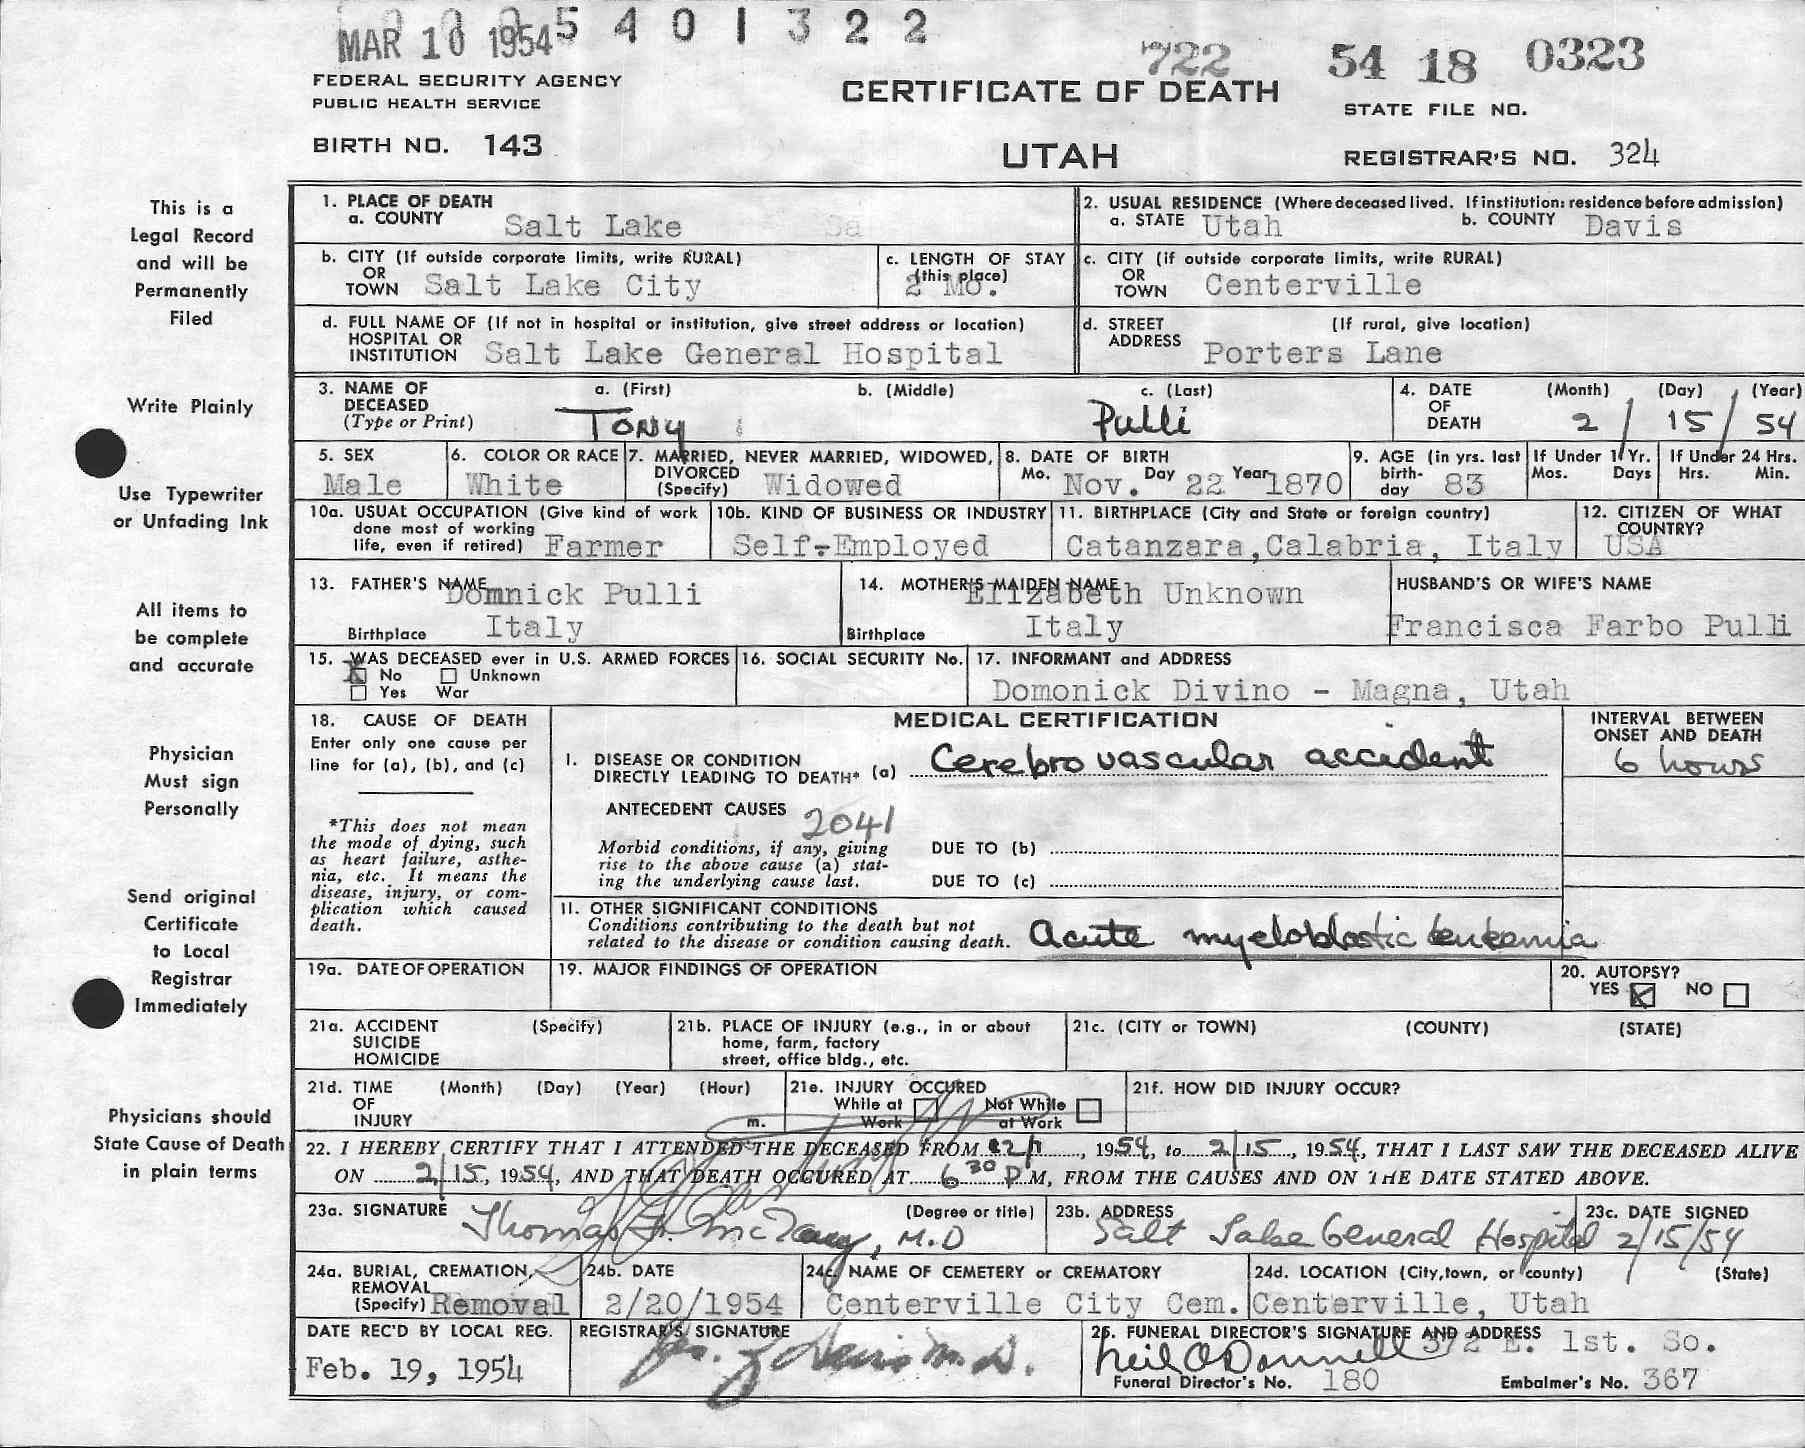 MAR 10 1954 5 4 0 1 3 2 2
722 54 18 0323
FEDERAL SECURITY AGENCY
PUBLIC HEALTH SERVICE
CERTIFICATE OF DEATH
STATE FILE NO.
BIRTH NO. 143
UTAH
REGISTRAR'S NO. 324
This is a
Legal Record
and will be
Permanently
Filed
Write Plainly
Use Typewriter
or Unfading Ink
All items to
be complete
and accurate
Physician
Must sign
Personally
Send original
Certificate
to Local
Registrar
Immediately
Physicians should
State Cause of Death
in plain terms
1. PLACE OF DEATH
a. COUNTY Salt Lake Sa
2. USUAL RESIDENCE (Where deceased lived. If institution: residence before admission)
a. STATE Utah b. COUNTY Davis
b. CITY (If outside corporate limits, write RURAL)
OR
TOWN Salt Lake City
c. LENGTH OF STAY
(this place)
2 Mo.
c. CITY (if outside corporate limits, write RURAL)
OR
TOWN Centerville
d. FULL NAME OF (If not in hospital or institution, give street address or location)
HOSPITAL OR
INSTITUTION Salt Lake General Hospital
d. STREET (If rural, give location)
ADDRESS Porters Lane
3. NAME OF a. (First) b. (Middle) c. (Last)
DECEASED
(Type or Print) Tony Pulli
4. DATE (Month) (Day) (Year)
OF
DEATH 2 / 15 / 54
5. SEX
Male
6. COLOR OR RACE
White
7. MARRIED, NEVER MARRIED, WIDOWED,
DIVORCED
(Specify) Widowed
8. DATE OF BIRTH
Mo. Nov. Day 22 Year 1870
9. AGE (in yrs. last
birth-
day 83
If Under 1 Yr.
Mos. Days
If Under 24 Hrs.
Hrs. Min.
10a. USUAL OCCUPATION (Give kind of work
done most of working
life, even if retired) Farmer
10b. KIND OF BUSINESS OR INDUSTRY
Self-Employed
11. BIRTHPLACE (City and State or foreign country)
Catanzara,Calabria, Italy
12. CITIZEN OF WHAT
COUNTRY?
USA
13. FATHER'S NAME
Domnick Pulli
Birthplace Italy
14. MOTHER'S MAIDEN NAME
Elizabeth Unknown
Birthplace Italy
HUSBAND'S OR WIFE'S NAME
Francisca Farbo Pulli
15. WAS DECEASED ever in U.S. ARMED FORCES
No Unknown
Yes War
16. SOCIAL SECURITY No.
17. INFORMANT and ADDRESS
Domonick Divino - Magna, Utah
18. CAUSE OF DEATH
Enter only one cause per
line for (a), (b), and (c)
*This does not mean
the mode of dying, such
as heart failure, asthe-
nia, etc. It means the
disease, injury, or com-
plication which caused
death.
MEDICAL CERTIFICATION
INTERVAL BETWEEN
ONSET AND DEATH
I. DISEASE OR CONDITION
DIRECTLY LEADING TO DEATH* (a) Cerebro vascular accident 6 hours
ANTECEDENT CAUSES 2041
Morbid conditions, if any, giving
rise to the above cause (a) stat-
ing the underlying cause last.
DUE TO (b)
DUE TO (c)
II. OTHER SIGNIFICANT CONDITIONS
Conditions contributing to the death but not
related to the disease or condition causing death. Acute myeloblastic leukemia
19a. DATE OF OPERATION
19. MAJOR FINDINGS OF OPERATION
20. AUTOPSY?
YES NO
21a. ACCIDENT (Specify)
SUICIDE
HOMICIDE
21b. PLACE OF INJURY (e.g., in or about
home, farm, factory
street, office bldg., etc.
21c. (CITY or TOWN) (COUNTY) (STATE)
21d. TIME (Month) (Day) (Year) (Hour)
OF
INJURY m.
21e. INJURY OCCURED
While at Not While
Work at Work
21f. HOW DID INJURY OCCUR?
22. I HEREBY CERTIFY THAT I ATTENDED THE DECEASED FROM 12/1, 1954, to 2/15, 1954, THAT I LAST SAW THE DECEASED ALIVE
ON 2/15, 1954, AND THAT DEATH OCCURED AT 6 30 P M, FROM THE CAUSES AND ON THE DATE STATED ABOVE.
23a. SIGNATURE (Degree or title)
Thomas M.D
23b. ADDRESS
Salt Lake General Hospital
23c. DATE SIGNED
2/15/54
24a. BURIAL, CREMATION,
REMOVAL
(Specify) Removal
24b. DATE
2/20/1954
24c. NAME OF CEMETERY or CREMATORY
Centerville City Cem.
24d. LOCATION (City,town, or county) (State)
Centerville, Utah
DATE REC'D BY LOCAL REG.
Feb. 19, 1954
REGISTRAR'S SIGNATURE
M.D.
25. FUNERAL DIRECTOR'S SIGNATURE AND ADDRESS
Neil O'Donnell 372 E. 1st. So.
Funeral Director's No. 180 Embalmer's No. 367